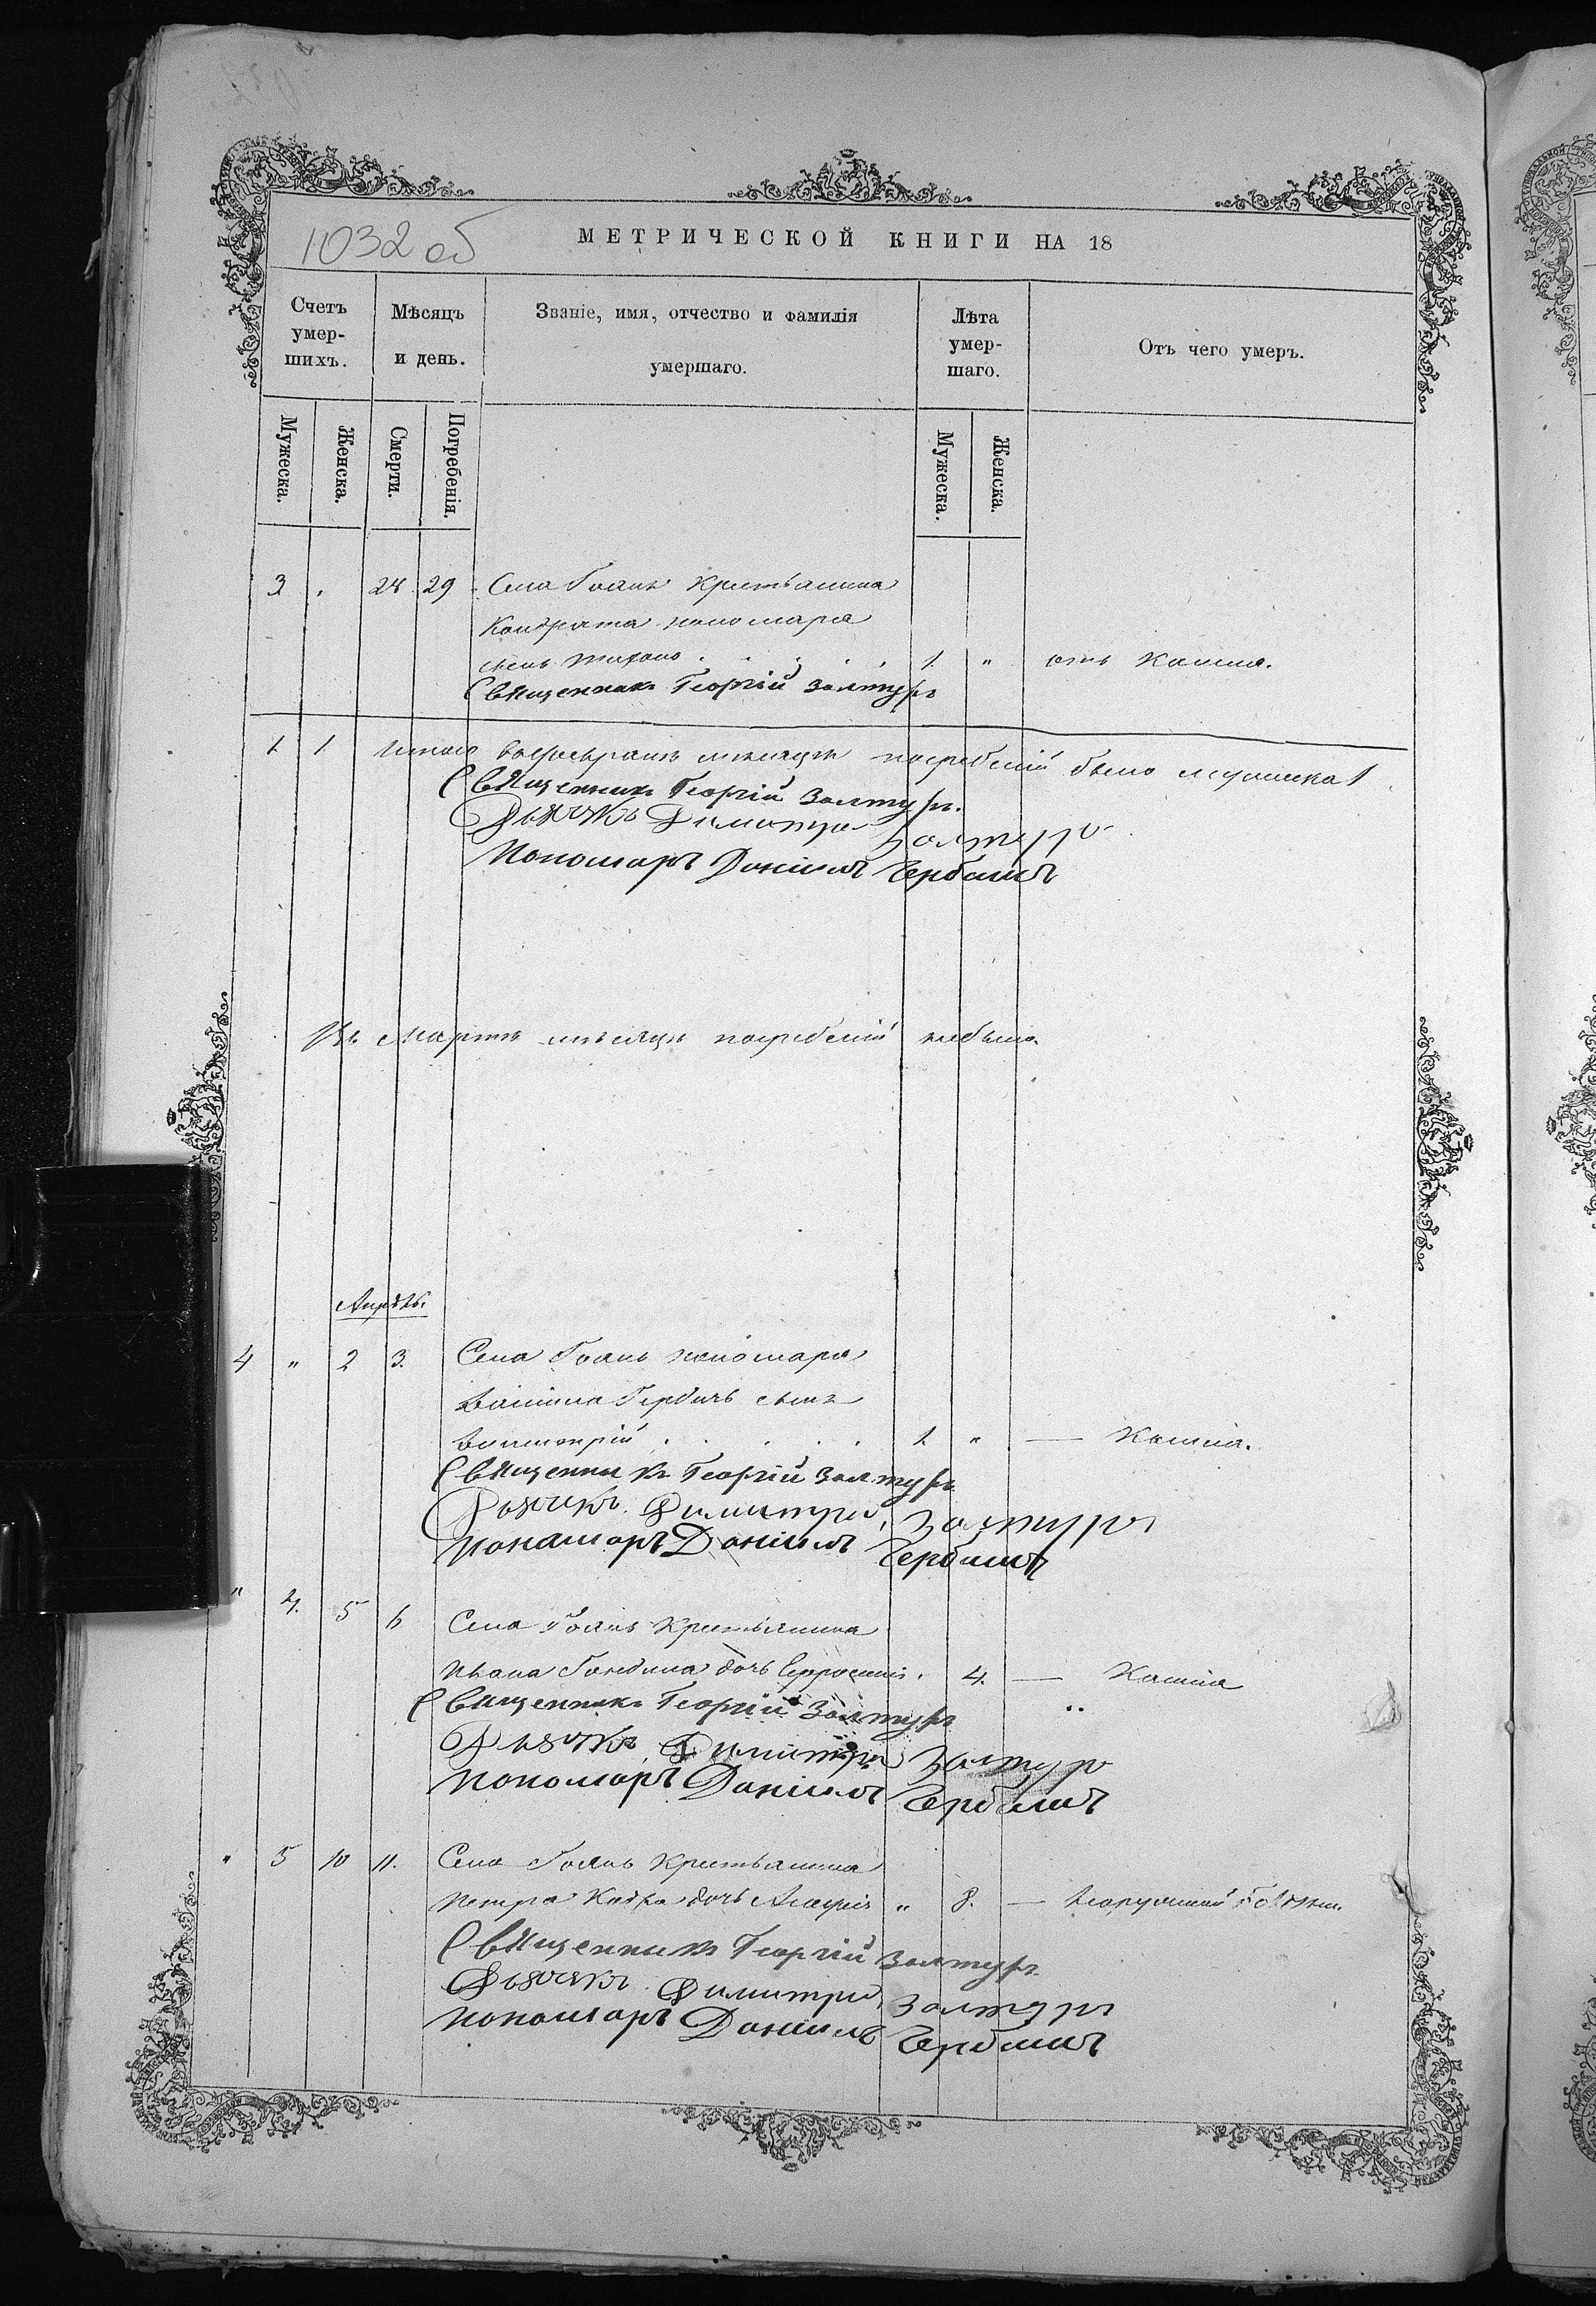 1032 об
МЕТРИЧЕСКОЙ КНИГИ НА 18
Счетъ умер-шихъ.
Мѣсяцъ и день.
Званіе, имя, отчество и фамилія умершаго.
Лѣта умер-шаго.
Отъ чего умеръ.
Мужеска.
Женска.
Смерти.
Погребенія.
Мужеска.
Женска.
3 28 29 Села Гоянъ крестьянина
Кондрата пономаря
сынъ 1. " отъ кашля.
Священникъ Георгій Залтуръ
1. 1 Итого въ февралѣ мѣсяцѣ погребеній было мужеска 1
Священникъ Георгій Залтуръ.
Дьячокъ Димитрій Залтуръ
Пономарь Даніилъ Чербанъ
Въ Мартѣ мѣсяцѣ погребеній небыло.
Апрѣль.
4 " 2 3. Села Гоянъ пономаря
Даніила Гербанъ сынъ
Димитрій 1. " — Кашля.
Священникъ Георгій Залтуръ
Дьячекъ Димитрій Залтуръ
Понамарь Даніилъ Чербанъ
" 4. 5 6 Села Гоянъ крестьянина
Ивана дочь 4. — Кашля
Священникъ Георгій Залтуръ
Дьячекъ Димитрій Залтуръ
Пономарь Даніилъ Чербанъ
" 5 10 11. Села Гоянъ крестьянина
Петра дочь " 8. —
Священникъ Георгій Залтуръ
Дьячекъ Димитрій Залтуръ
Пономарь Даніилъ Чербанъ